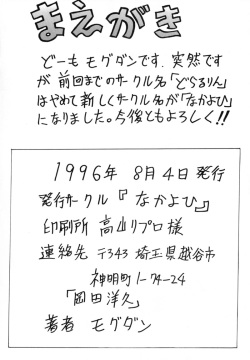 まえがき
どーも モグダンです. 突然です
が 前回までのサークル名「どらるりん」
はやめて 新しくサークル名が「なかよひ」
になりました。今後ともよろしく!!
1996年 8月4日 発行
発行サークル『なかよひ』
印刷所 高山リプロ 様
連絡先 〒343 埼玉県越谷市
神明町1-74-24
「岡田洋久」
著者 モグダン